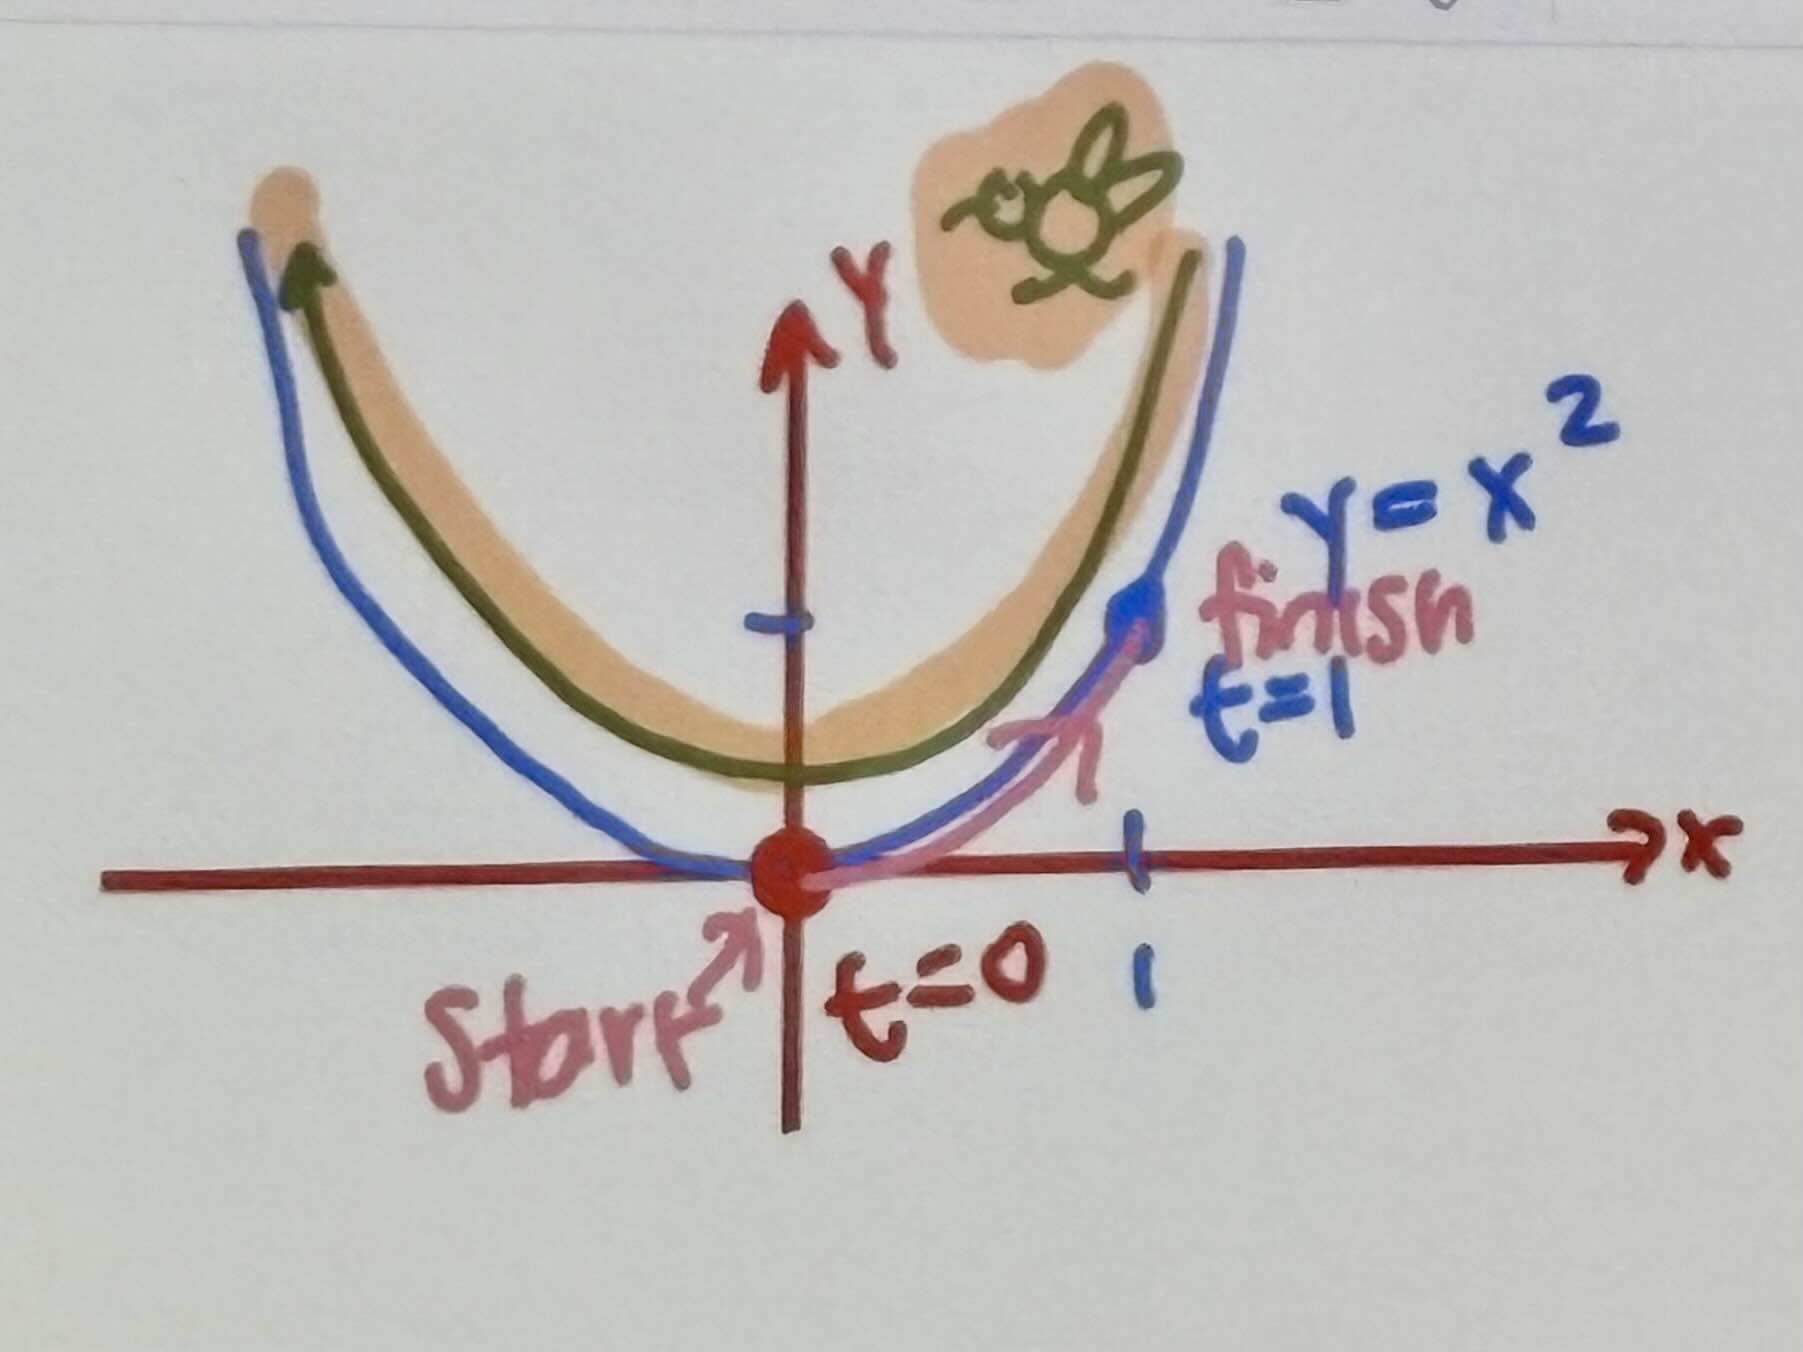 Y
y = x²
finish
t=1
x
Start
t=0
1